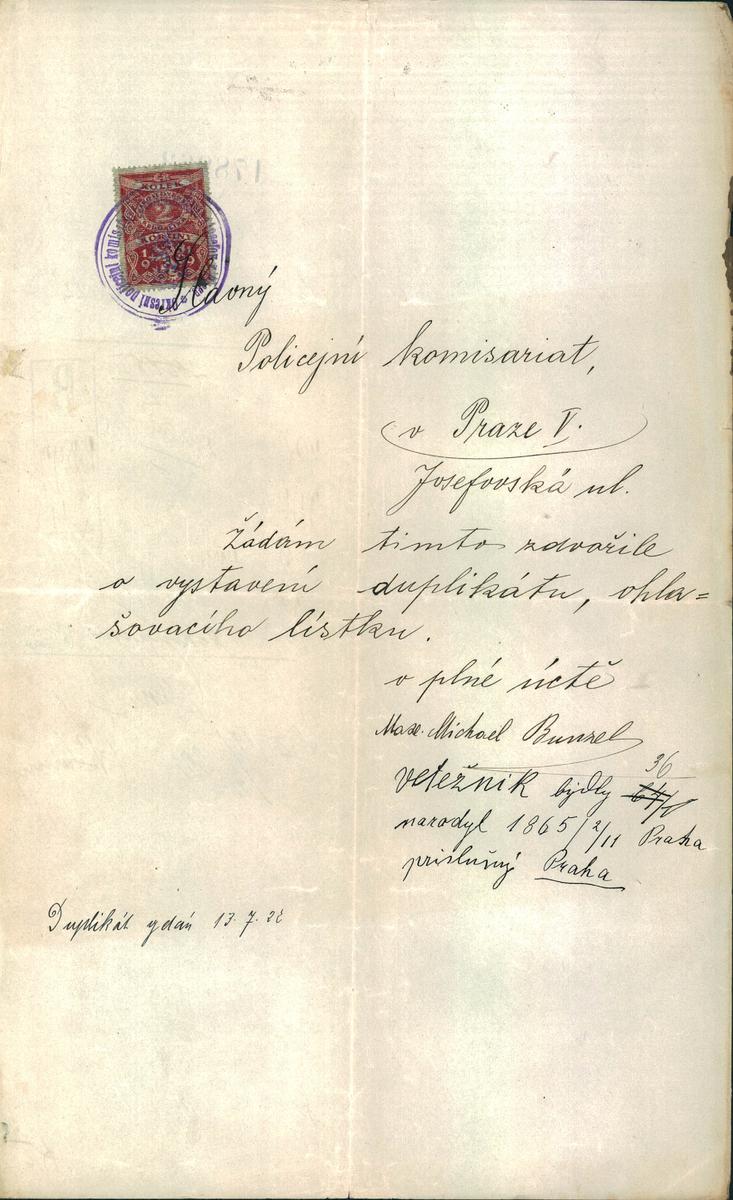 KOLEK
2
KORUNY
1919
okresní policejní komis
Slavný
Policejní komisariat,
v Praze V.
Josefovská ul.
Žádám timto zdvořile
o vystavení duplikátu, ohla=
šovacího lístku.
v plné úctě
Max. Michael Bunzel
36
vetežnik bydly 64/V
narodyl 1865/2/11 Praha
prislušný Praha
Duplikát vydán 13. 7. 22